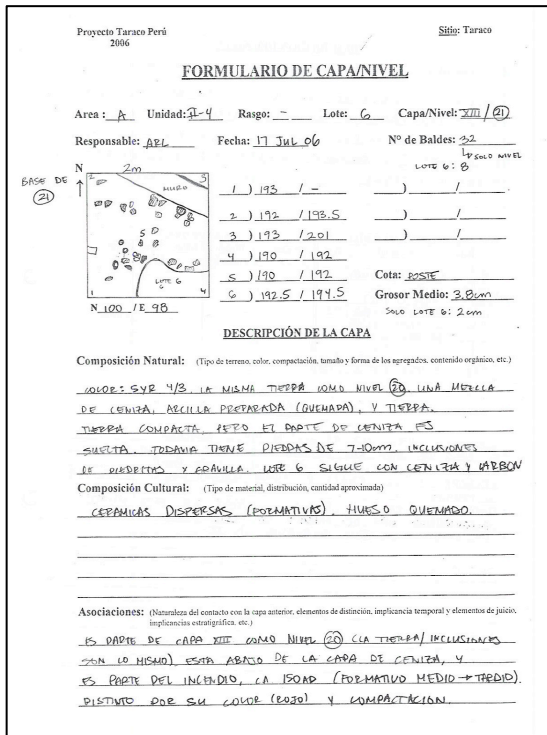 Proyecto Taraco Perú Sitio: Taraco
2006
FORMULARIO DE CAPA/NIVEL
Area : A Unidad: II-4 Rasgo: - Lote: 6 Capa/Nivel: XIII / 21
Responsable: ARL Fecha: 17 JUL 06 Nº de Baldes: 32
SOLO NIVEL
LOTE 6: 8
BASE DE
21
N 2m
2 3
MURO
5
LOTE 6
1 4
N 100 / E 98
1 ) 193 / -
2 ) 192 / 193.5
3 ) 193 / 201
4 ) 190 / 192
5 ) 190 / 192
6 ) 192.5 / 194.5
) /
) /
) /
Cota: POSTE
Grosor Medio: 3.8cm
SOLO LOTE 6: 2cm
DESCRIPCIÓN DE LA CAPA
Composición Natural: (Tipo de terreno, color, compactación, tamaño y forma de los agregados, contenido orgánico, etc.)
COLOR: 5YR 4/3. LA MISMA TIERRA COMO NIVEL 20. UNA MEZCLA
DE CENIZA, ARCILLA PREPARADA (QUEMADA), Y TIERRA.
TIERRA COMPACTA, PERO EL PARTE DE CENIZA ES
SUELTA. TODAVIA TIENE PIEDRAS DE 7-10cm. INCLUSIONES
DE PIEDRITAS Y GRAVILLA. LOTE 6 SIGUE CON CENIZA Y CARBON
Composición Cultural: (Tipo de material, distribución, cantidad aproximada)
CERAMICAS DISPERSAS (FORMATIVAS). HUESO QUEMADO.
Asociaciones: (Naturaleza del contacto con la capa anterior, elementos de distinción, implicancia temporal y elementos de juicio,
implicancias estratigráfica, etc.)
ES PARTE DE CAPA XIII COMO NIVEL 20 (LA TIERRA/INCLUSIONES
SON LO MISMO) ESTA ABAJO DE LA CAPA DE CENIZA, Y
ES PARTE DEL INCENDIO, CA 150AD (FORMATIVO MEDIO → TARDIO).
DISTINTO POR SU COLOR (ROJO) Y COMPACTACION.